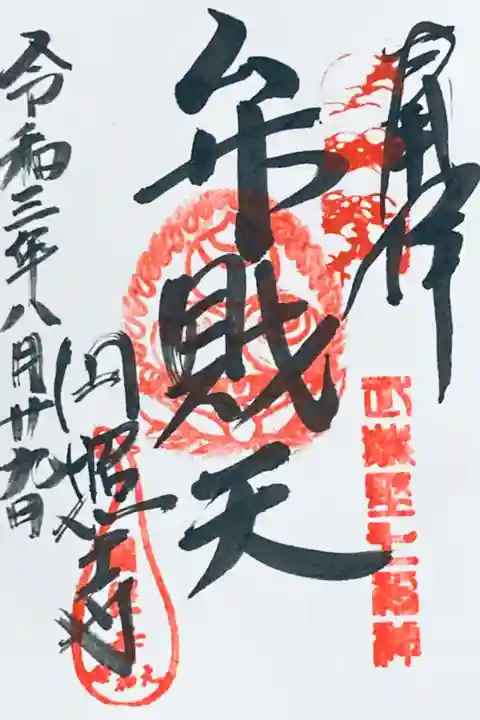 奉拝
武蔵野七福神
弁財天
円照寺
令和三年八月廿九日